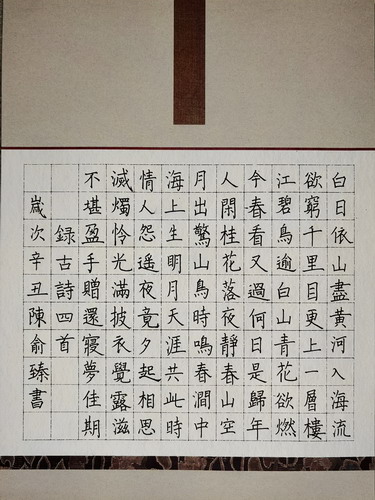 白日依山盡黃河入海流
欲窮千里目更上一層樓
江碧鳥逾白山青花欲燃
今春看又過何日是歸年
人閑桂花落夜靜春山空
月出驚山鳥時鳴春澗中
海上生明月天涯共此時
情人怨遥夜竟夕起相思
滅燭怜光滿披衣覺露滋
不堪盈手贈還寢夢佳期
録古詩四首
嵗次辛丑陳俞臻書